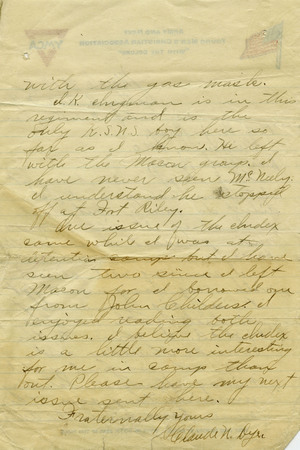 with the gas masks.
I.K. Chapman is in this
regiment and is the
only K.S.N.S. boy here so
far as I know. He left
with the Macon group. I
have never seen McNeely.
I understand he stopped
off at Fort Riley.
One issue of the Index
came while I was at
detention camp but I have
seen two since I left
Macon for I borrowed one
from John Childers. I
enjoyed reading both
issues. I believe the Index
is a little more interesting
for me in camp than
out. Please have my next
issue sent here.
Fraternally yours
Claude N.